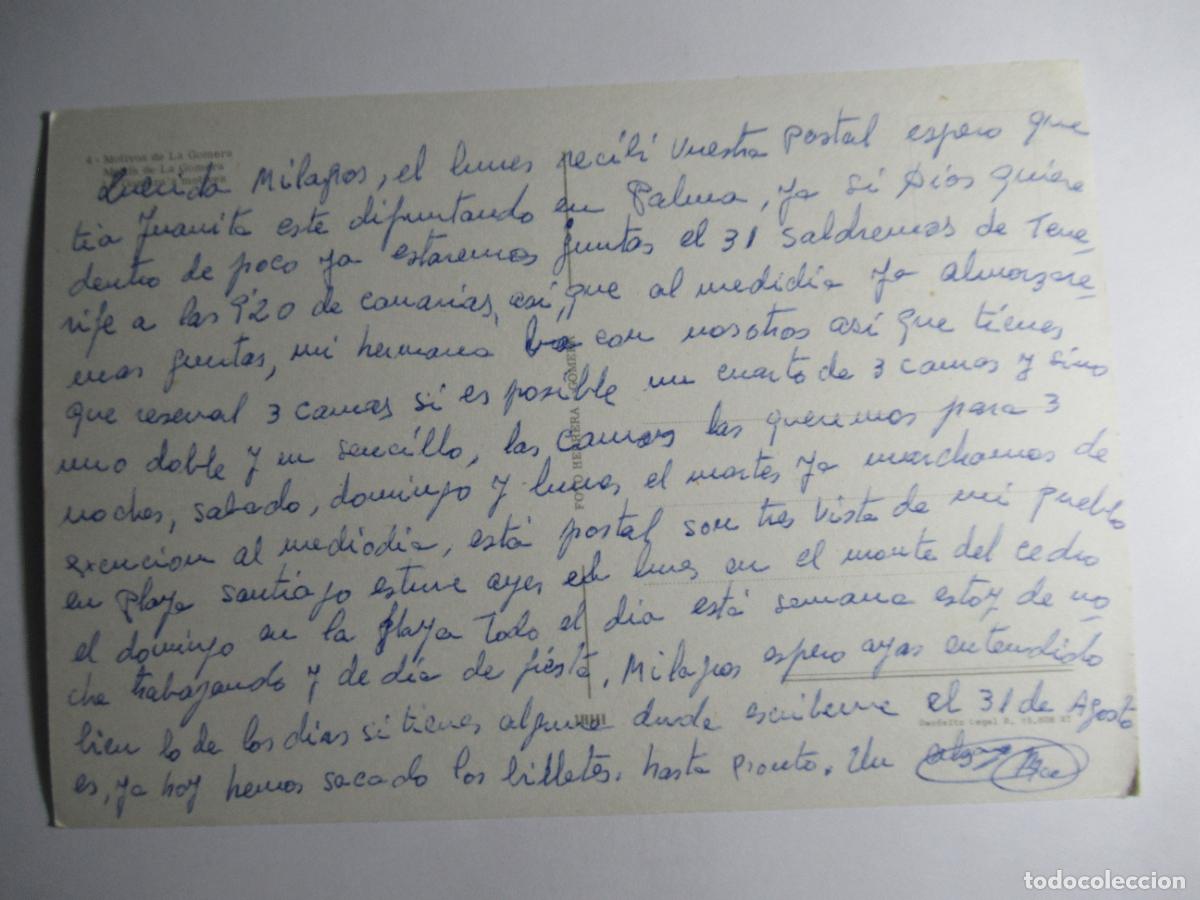 4 - Motivos de La Gomera
Motifs de La Gomera
Querida Milagros, el lunes recibí vuestra postal espero que
tia Juanita este difrutando en Palma, ya si Dios quiere
dentro de poco ya estaremos juntas el 31 saldremos de Tene-
rife a las 9'20 de canarias, así, que al medidia ya almorzare-
mos juntas, mi hermana va con nosotros así que tienes
que reserval 3 camas si es posible un cuarto de 3 camas y sino
uno doble y un sencillo, las camas las queremos para 3
noches, sabado, domingo y lunes el martes ya marchamos de
excucion al mediodia, está postal son tres vista de mi pueblo
en playa santiago estuve ayer el lunes en el monte del cedro
el domingo en la playa todo el día está semana estoy de no
che trabajando y de día de fiesta, Milagros espero ayas entendido
bien lo de los días si tienes alguna duda escribeme el 31 de Agosto
es, ya hoy hemos sacado los billetes, hasta pronto. Un
FOTO HERRERA - GOMERA
Depósito Legal B.
todocoleccion